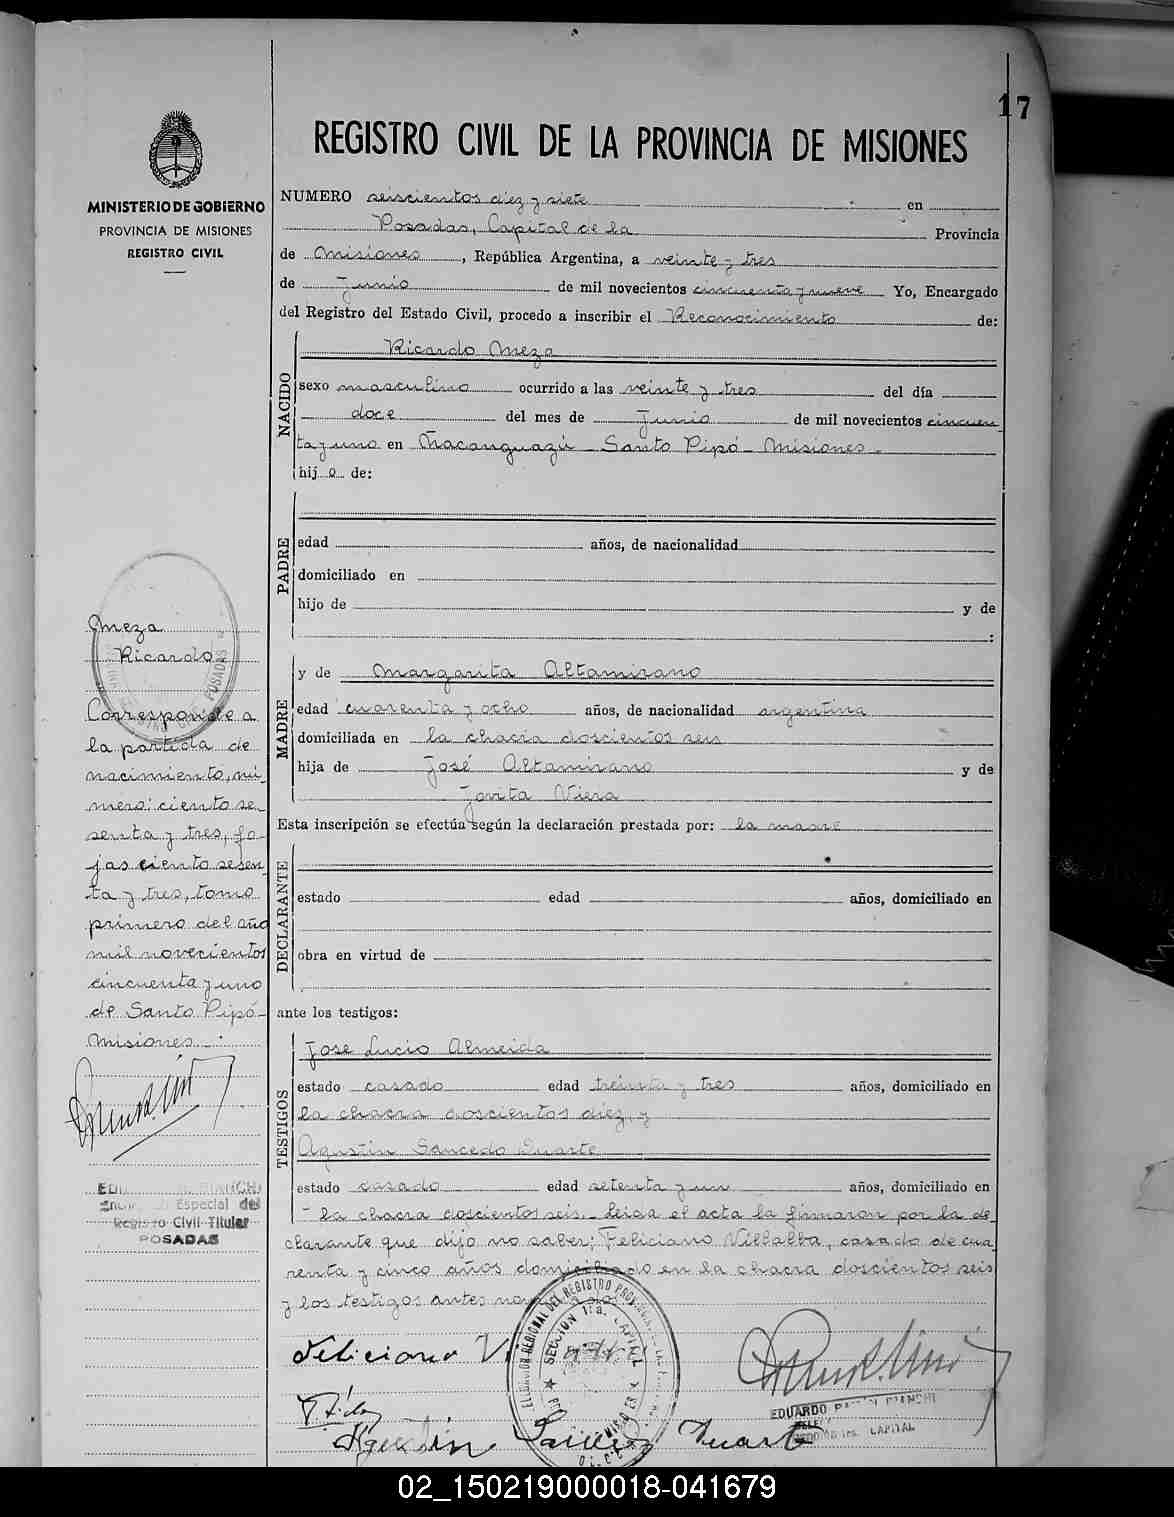 17
REGISTRO CIVIL DE LA PROVINCIA DE MISIONES
MINISTERIO DE GOBIERNO
PROVINCIA DE MISIONES
REGISTRO CIVIL
NUMERO seiscientos diez y siete en
Posadas, Capital de la Provincia
de Misiones, República Argentina, a veinte y tres
de Junio de mil novecientos cincuenta y nueve Yo, Encargado
del Registro del Estado Civil, procedo a inscribir el Reconocimiento de:
NACIDO
Ricardo Meza
sexo masculino ocurrido a las veinte y tres del día
doce del mes de Junio de mil novecientos cincuen
ta y uno en Ñacanguazú - Santo Pipó - Misiones -
hijo de:
PADRE
edad años, de nacionalidad
domiciliado en
hijo de y de
:
MADRE
y de Margarita Altamirano
edad cuarenta y ocho años, de nacionalidad argentina
domiciliada en la chacra doscientos seis
hija de José Altamirano y de
Jovita Viera
Esta inscripción se efectúa según la declaración prestada por: la madre
DECLARANTE
estado edad años, domiciliado en
obra en virtud de
ante los testigos:
TESTIGOS
Jose Lucio Almeida
estado casado edad treinta y tres años, domiciliado en
la chacra doscientos diez, y
Agustin Saucedo Duarte
estado casado edad setenta y un años, domiciliado en
la chacra doscientos seis. Leida el acta la firmaron por la de
clarante que dijo no saber; Feliciano Villalba, casado de cua
renta y cinco años domiciliado en la chacra doscientos seis
y los testigos antes
Meza
Ricardo
Corresponde a
la partida de
nacimiento, nú-
mero: ciento se-
senta y tres, fo-
jas ciento sesen-
ta y tres, tomo
primero del año
mil novecientos
cincuenta y uno
de Santo Pipó-
Misiones -
BIANCHI
Especial del
Registro Civil Titular
POSADAS
Feliciano
Agustin Duarte
EDUARDO BIANCHI
CAPITAL
02_150219000018-041679